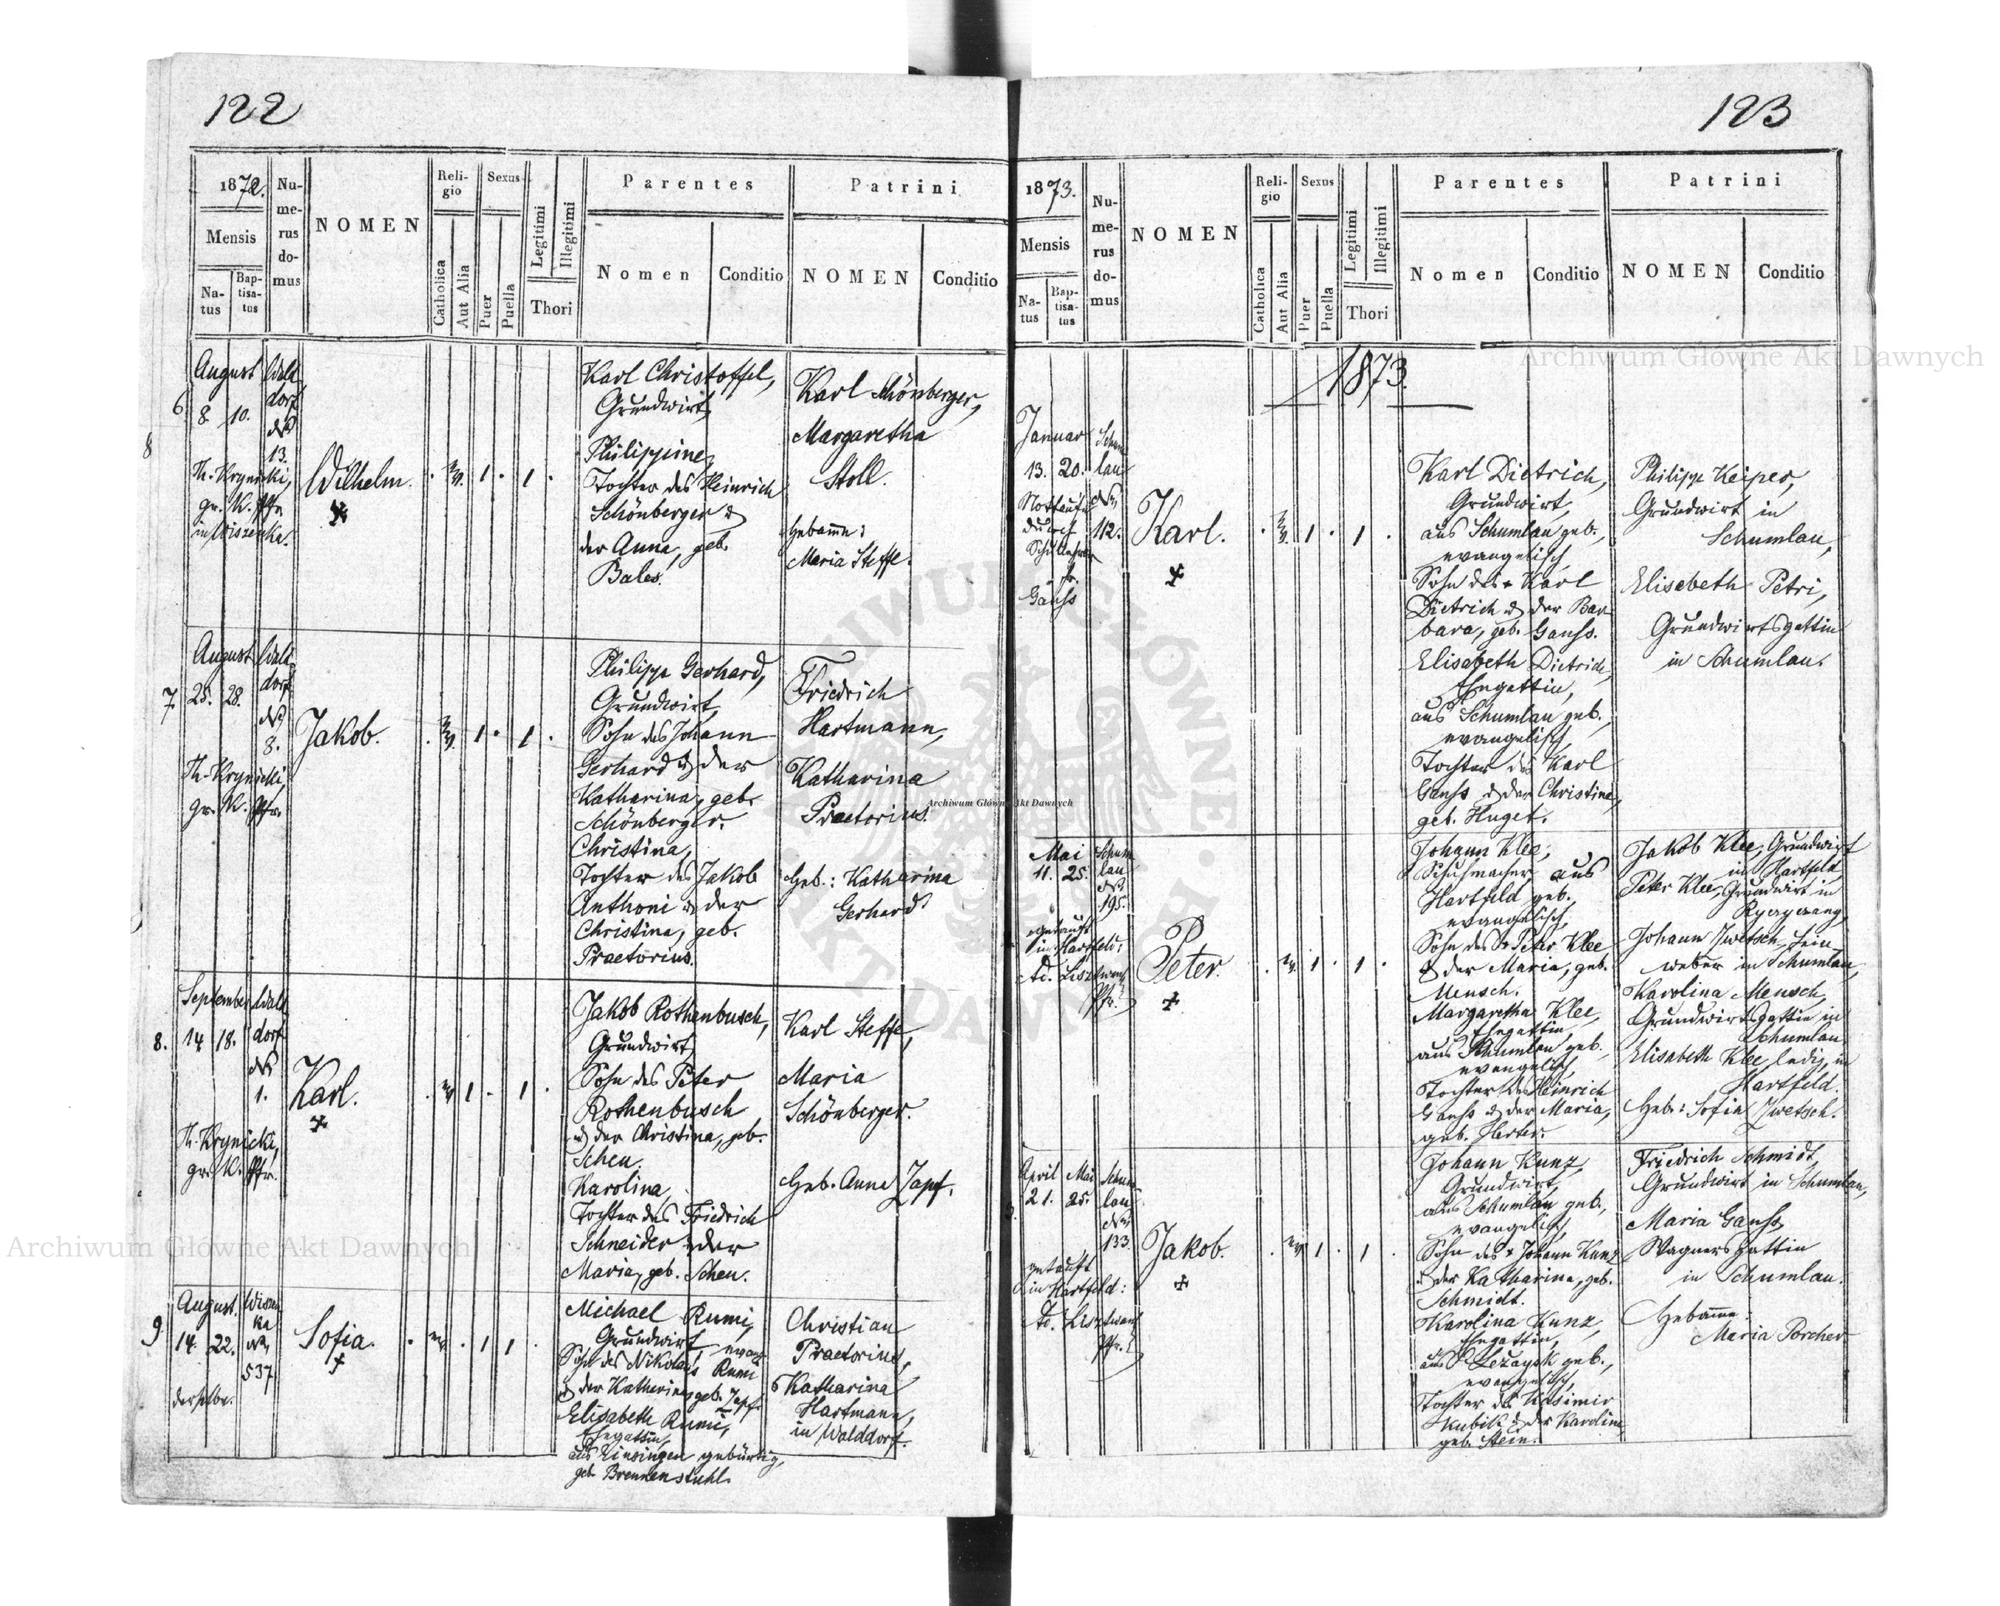 122
1872.
Mensis
Na-
tus
Bap-
tisa-
tus
Nu-
me-
rus
do-
mus
NOMEN
Reli-
gio
Catholica
Aut Alia
Sexus
Puer
Puella
Legitimi
Illegitimi
Thori
Parentes
Nomen
Conditio
Patrini
NOMEN
Conditio
6.
8
August
8 10.
Wald
dorf
№
13.
Th. Krynicki,
gr. K. Pfr.
in Wiszenka.
Wilhelm.
ev. 1 . 1 .
Karl Christoffel,
Grundwirt,
Philippine,
Tochter des Heinrich
Schönberger &
der Anna, geb.
Bales.
Karl Schönberger,
Margaretha
Stoll.
Hebamme:
Maria Steffe.
7.
August
25. 28.
Wald
dorf
№
8.
Th. Krynicki,
gr. K. Pfr.
Jakob.
ev. 1 . 1 .
Philipp Gerhard,
Grundwirt,
Sohn des Johann
Gerhard & der
Katharina, geb.
Schönberger.
Christina,
Tochter des Jakob
Anthoni & der
Christina, geb.
Praetorius.
Friedrich
Hartmann,
Katharina
Praetorius.
Heb.: Katharina
Gerhard.
8.
September
14 18.
Wald
dorf
№
1.
Th. Krynicki,
gr. K. Pfr.
Karl.
ev. 1 . 1 .
Jakob Rothenbusch,
Grundwirt,
Sohn des Peter
Rothenbusch
& der Christina, geb.
Scheu.
Karolina,
Tochter des Friedrich
Schneider & der
Maria, geb. Scheu.
Karl Steffe,
Maria
Schönberger.
Heb. Anna Zapf.
9.
August.
14. 22.
Wiszen
ka
№
537
derselbe.
Sofia.
ev. . 1 1
Michael Rumi,
Grundwirt, evang.
Sohn des Nikolaus Rumi
& der Katharina, geb. Zapf.
Elisabeth Rumi,
Ehegattin,
aus Einsingen gebürtig,
geb. Brennenstuhl.
Christian
Praetorius,
Katharina
Hartmann,
in Walddorf.
123
1873.
Mensis
Na-
tus
Bap-
tisa-
tus
Nu-
me-
rus
do-
mus
NOMEN
Reli-
gio
Catholica
Aut Alia
Sexus
Puer
Puella
Legitimi
Illegitimi
Thori
Parentes
Nomen
Conditio
Patrini
NOMEN
Conditio
1873.
Januar
13. 20.
Schum
lau
№
112.
Nottaufe
durch
Schullehrer
Fr.
Ganss
Karl.
ev. 1 . 1 .
Karl Dietrich,
Grundwirt,
aus Schumlau geb.,
evangelisch,
Sohn des + Karl
Dietrich & der Bar-
bara, geb. Ganss.
Elisabeth Dietrich,
Ehegattin,
aus Schumlau geb.,
evangelisch,
Tochter des Karl
Ganss & der Christina,
geb. Huget.
Philipp Keiper,
Grundwirt in
Schumlau,
Elisabeth Petri,
Grundwirtsgattin
in Schumlau.
Mai
11. 25.
Schum
lau
№
195.
getauft
in Hartfeld:
Ad. Lisztwan
Pfr.
Peter.
. ev. 1 . 1 .
Johann Klee,
Schuhmacher, aus
Hartfeld geb.,
evangelisch,
Sohn des + Peter Klee
& der Maria, geb.
Mensch.
Margaretha Klee,
Ehegattin,
aus Schumlau geb.,
evangelisch,
Tochter des Heinrich
Ganss & der Maria,
geb. Herter.
Jakob Klee, Grundwirt
in Hartfeld,
Peter Klee, Grundwirt in
Johann Zwetsch, Lein-
weber in Schumlau,
Karolina Mensch,
Grundwirtsgattin in
Schumlau,
Elisabeth Klee, ledig, in
Hartfeld.
Heb.: Sofia Zwetsch.
April Mai
21. 25.
Schum
lau
№
133.
getauft
in Hartfeld:
Ad. Lisztwan
Pfr.
Jakob.
. ev. 1 . 1 .
Johann Kunz,
Grundwirt,
aus Schumlau geb.,
evangelisch,
Sohn des + Johann Kunz
& der Katharina, geb.
Schmidt.
Karolina Kunz,
Ehegattin,
aus Leżaysk geb.,
evangelisch,
Tochter des Kasimir
Kubik & der Karolina
geb. Stein.
Friedrich Schmidt,
Grundwirt in Schumlau,
Maria Ganss,
Wagnersgattin
in Schumlau.
Hebamme:
Maria Porcher
Archiwum Główne Akt Dawnych
Archiwum Główne Akt Dawnych
Archiwum Główne Akt Dawnych
ARCHIWUM GŁÓWNE AKT DAWNYCH